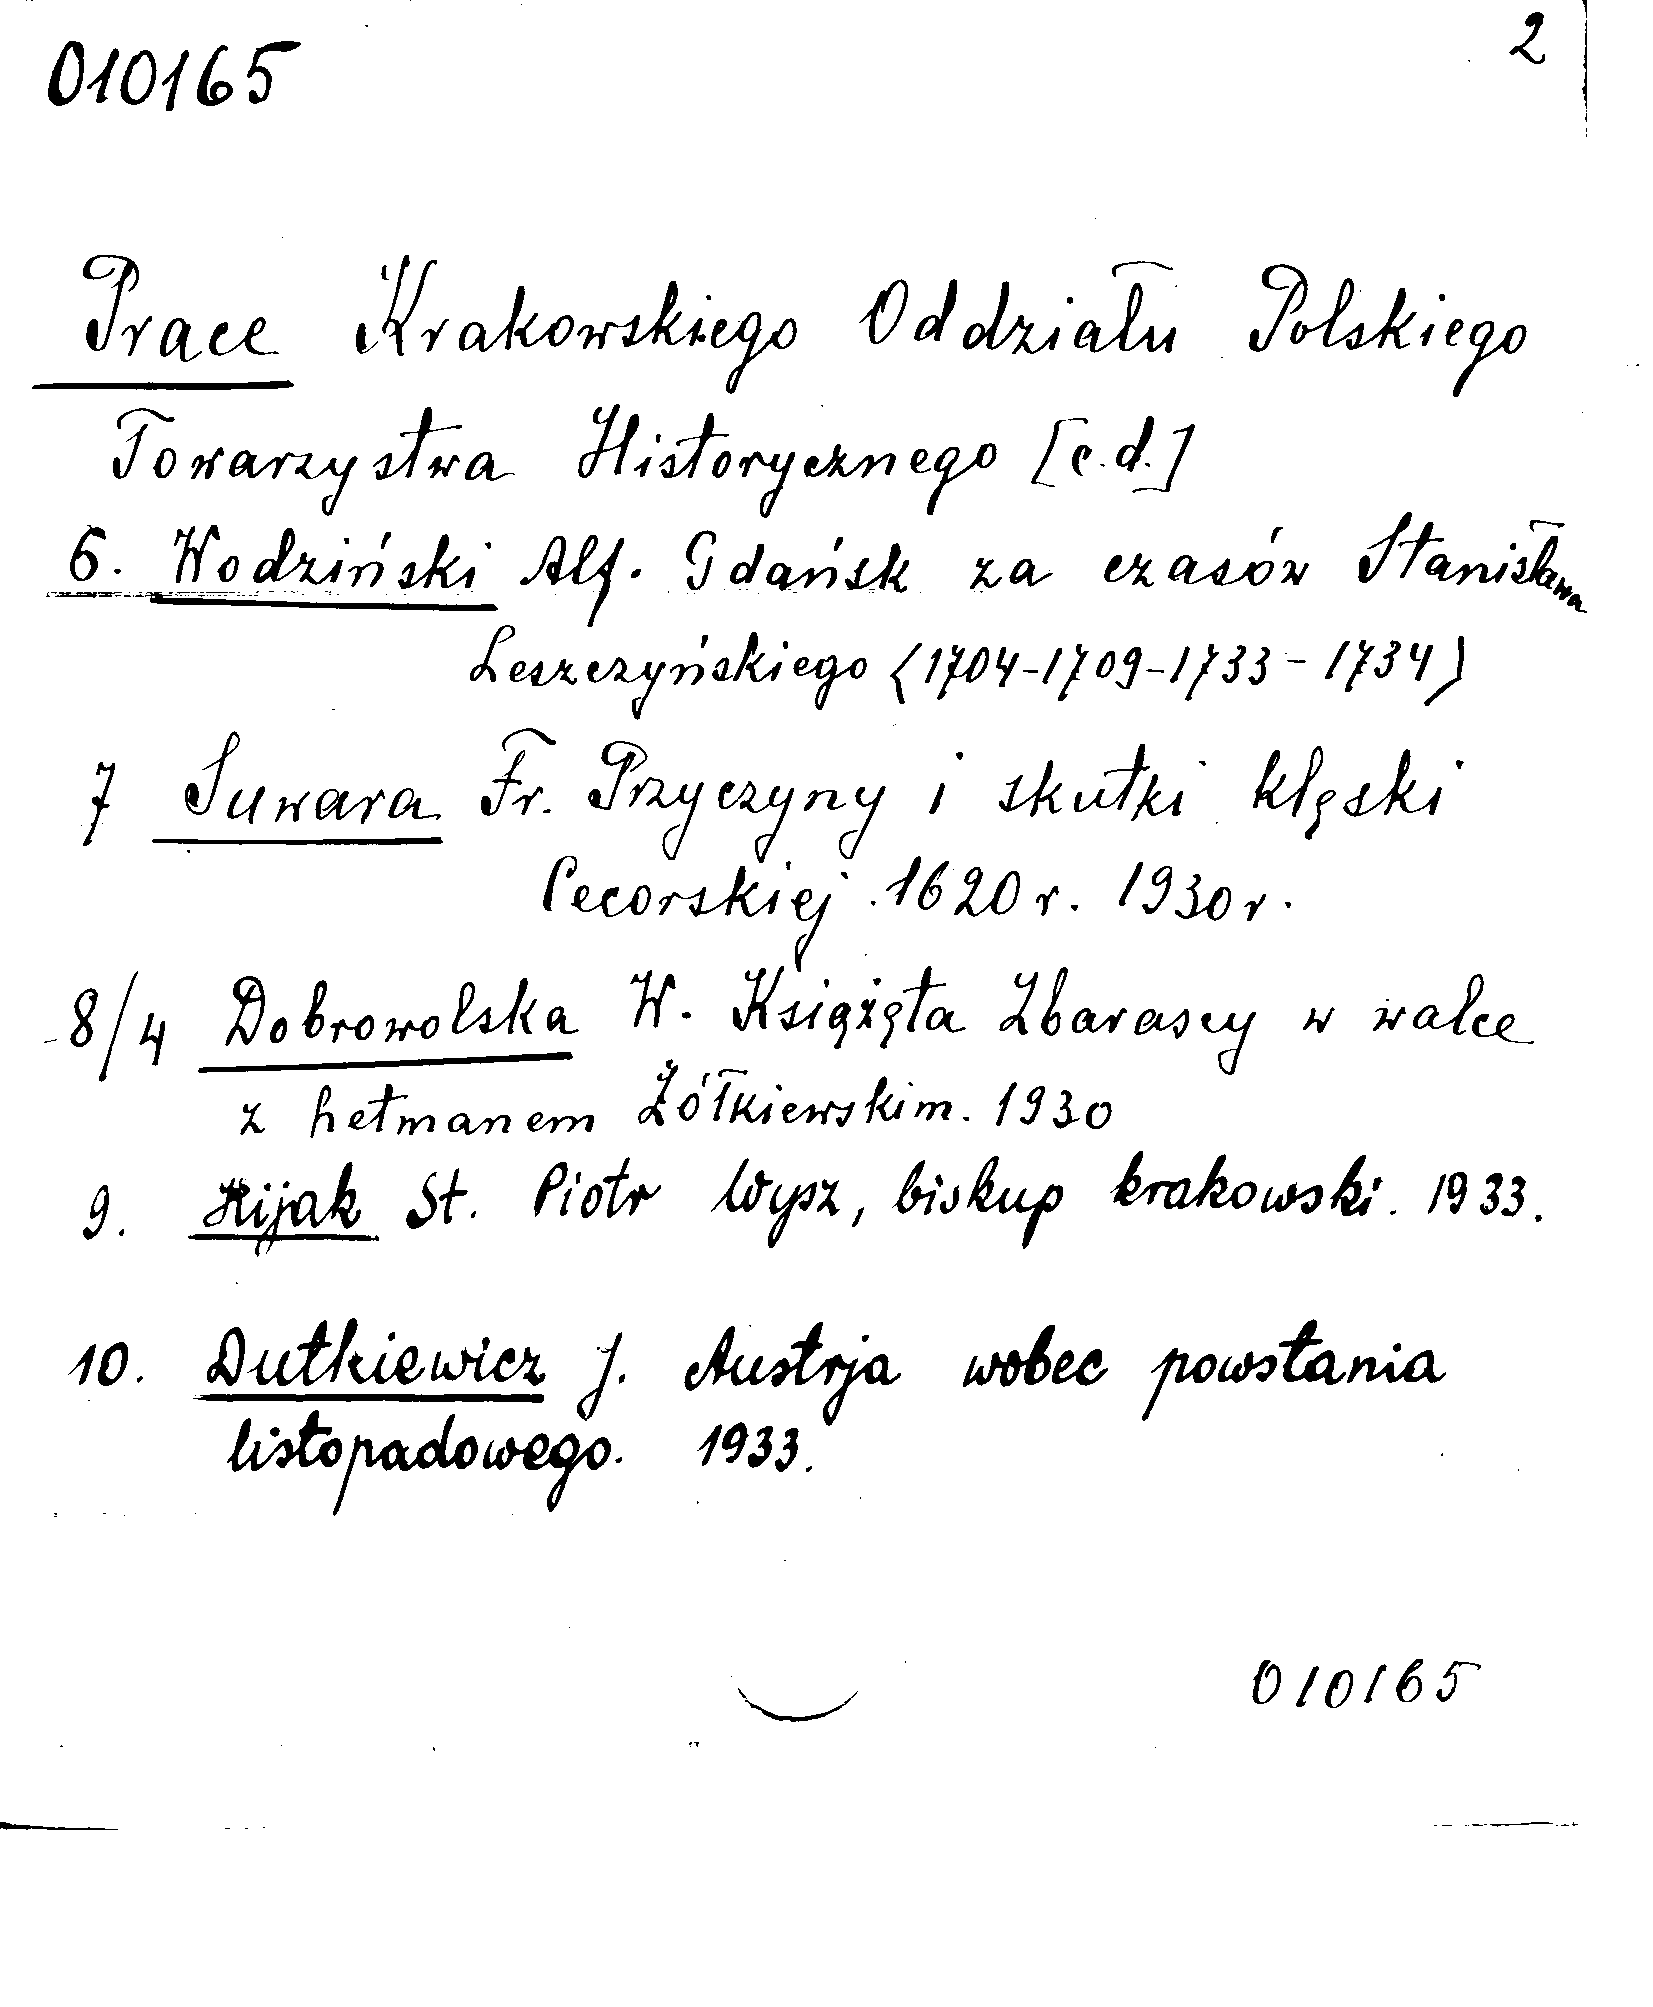 010165
2
Prace Krakowskiego Oddziału Polskiego
Towarzystwa Historycznego [c.d.]
6. Wodziński Alf. Gdańsk za czasów Stanisława
Leszczyńskiego (1704-1709-1733-1734)
7 Suwara Fr. Przyczyny i skutki klęski
Cecorskiej. 1620 r. 1930 r.
8/4 Dobrowolska W. Książęta Zbarascy w walce
z hetmanem Żółkiewskim. 1930
9. Kijak St. Piotr Wysz, biskup krakowski. 1933.
10. Dutkiewicz J. Austrja wobec powstania
listopadowego. 1933.
010165